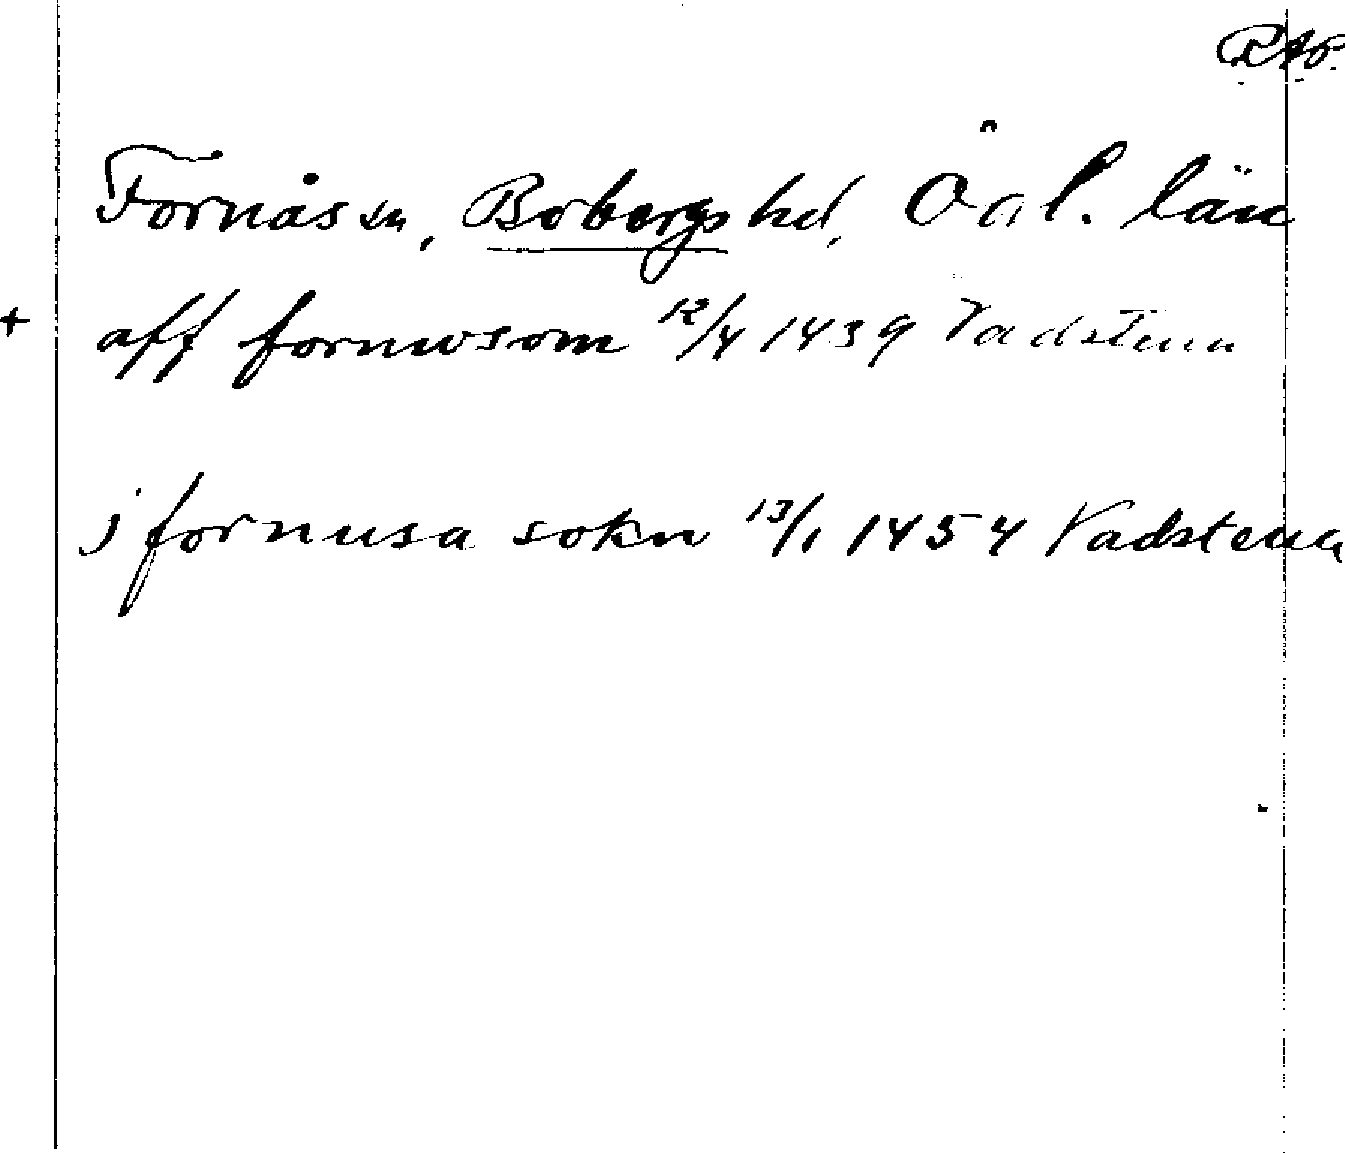 RAP.
Fornåsa sn, Bobergs hd, Ögl. län
+ aff fornwsom 12/4 1439 Vadstena
j fornusa sokn 13/1 1454 Vadstena